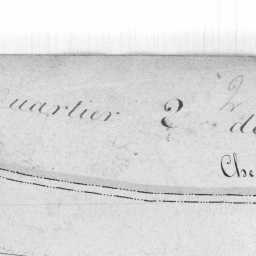 Quartier 2 2
de
Che